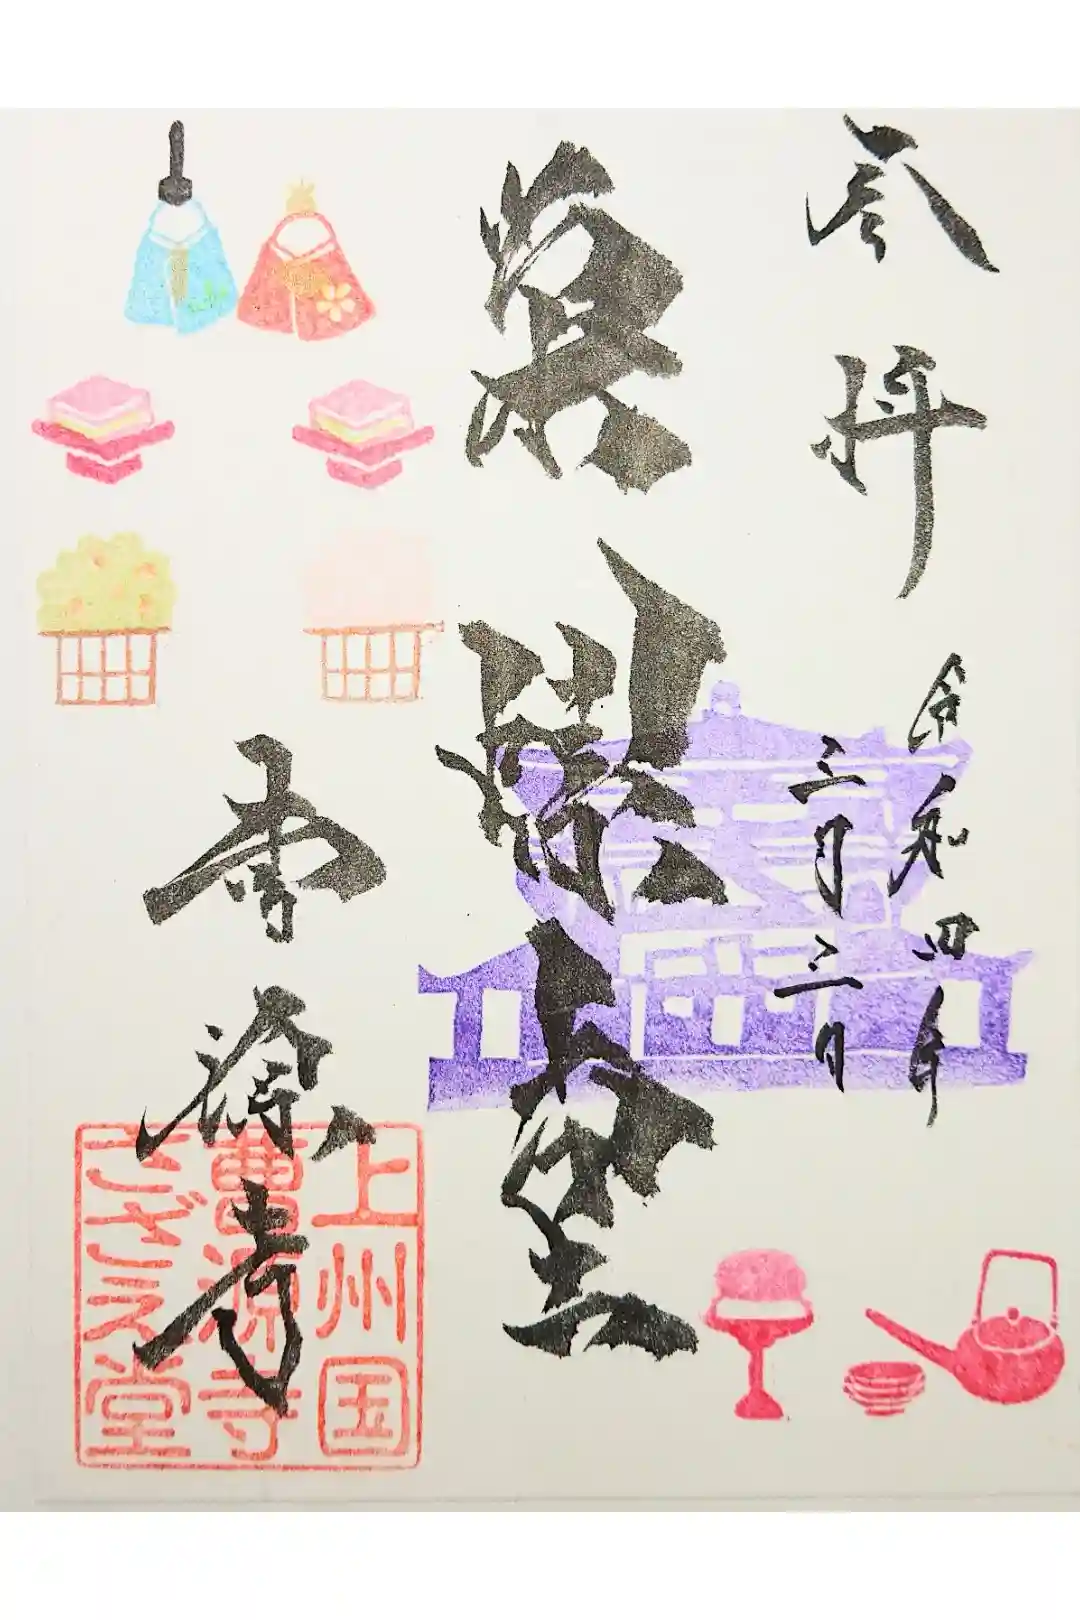 奉拝
令和四年
三月三日
栄螺堂
曹源寺
上州国
曹源寺
さざえ堂